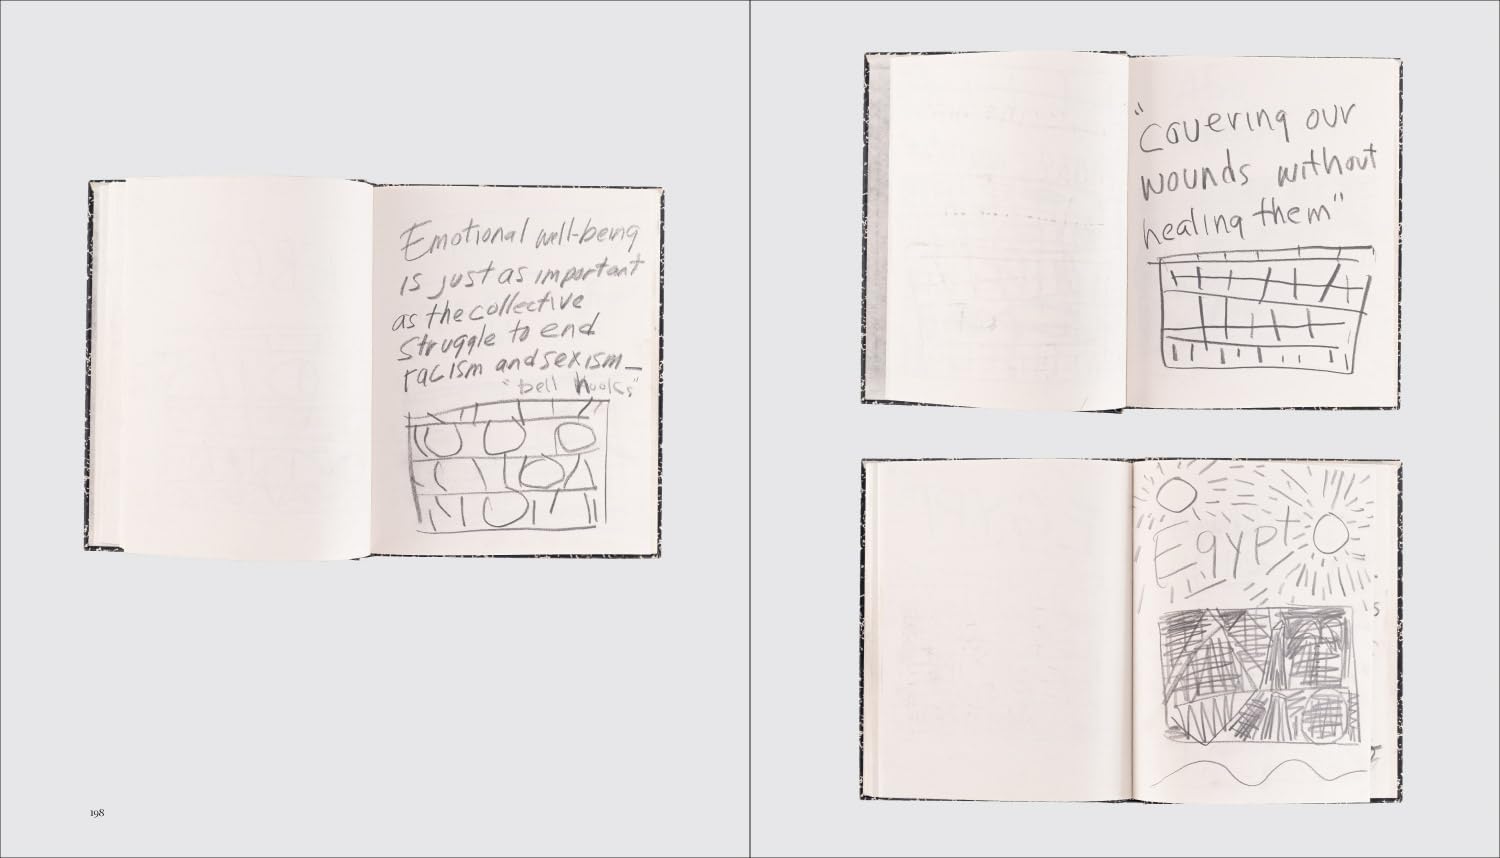 Emotional well-being
is just as important
as the collective
struggle to end
racism and sexism_
"bell hooks"
198
"Covering our
wounds without
healing them"
Egypt
s